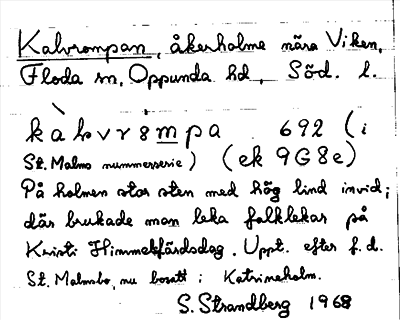 Kalvrompan, åkerholme nära Viken,
Floda sn, Oppunda hd, Söd. l.
kàlvrømpa 692 (i
St. Malmo nummerserie) (ek 9G8e)
På holmen stor sten med hög lind invid;
där brukade man leka folklekar på
Kristi Himmelsfärdsdag. Uppt. efter f.d.
St. Malmobo, nu bosatt i Katrineholm.
S. Strandberg 1968